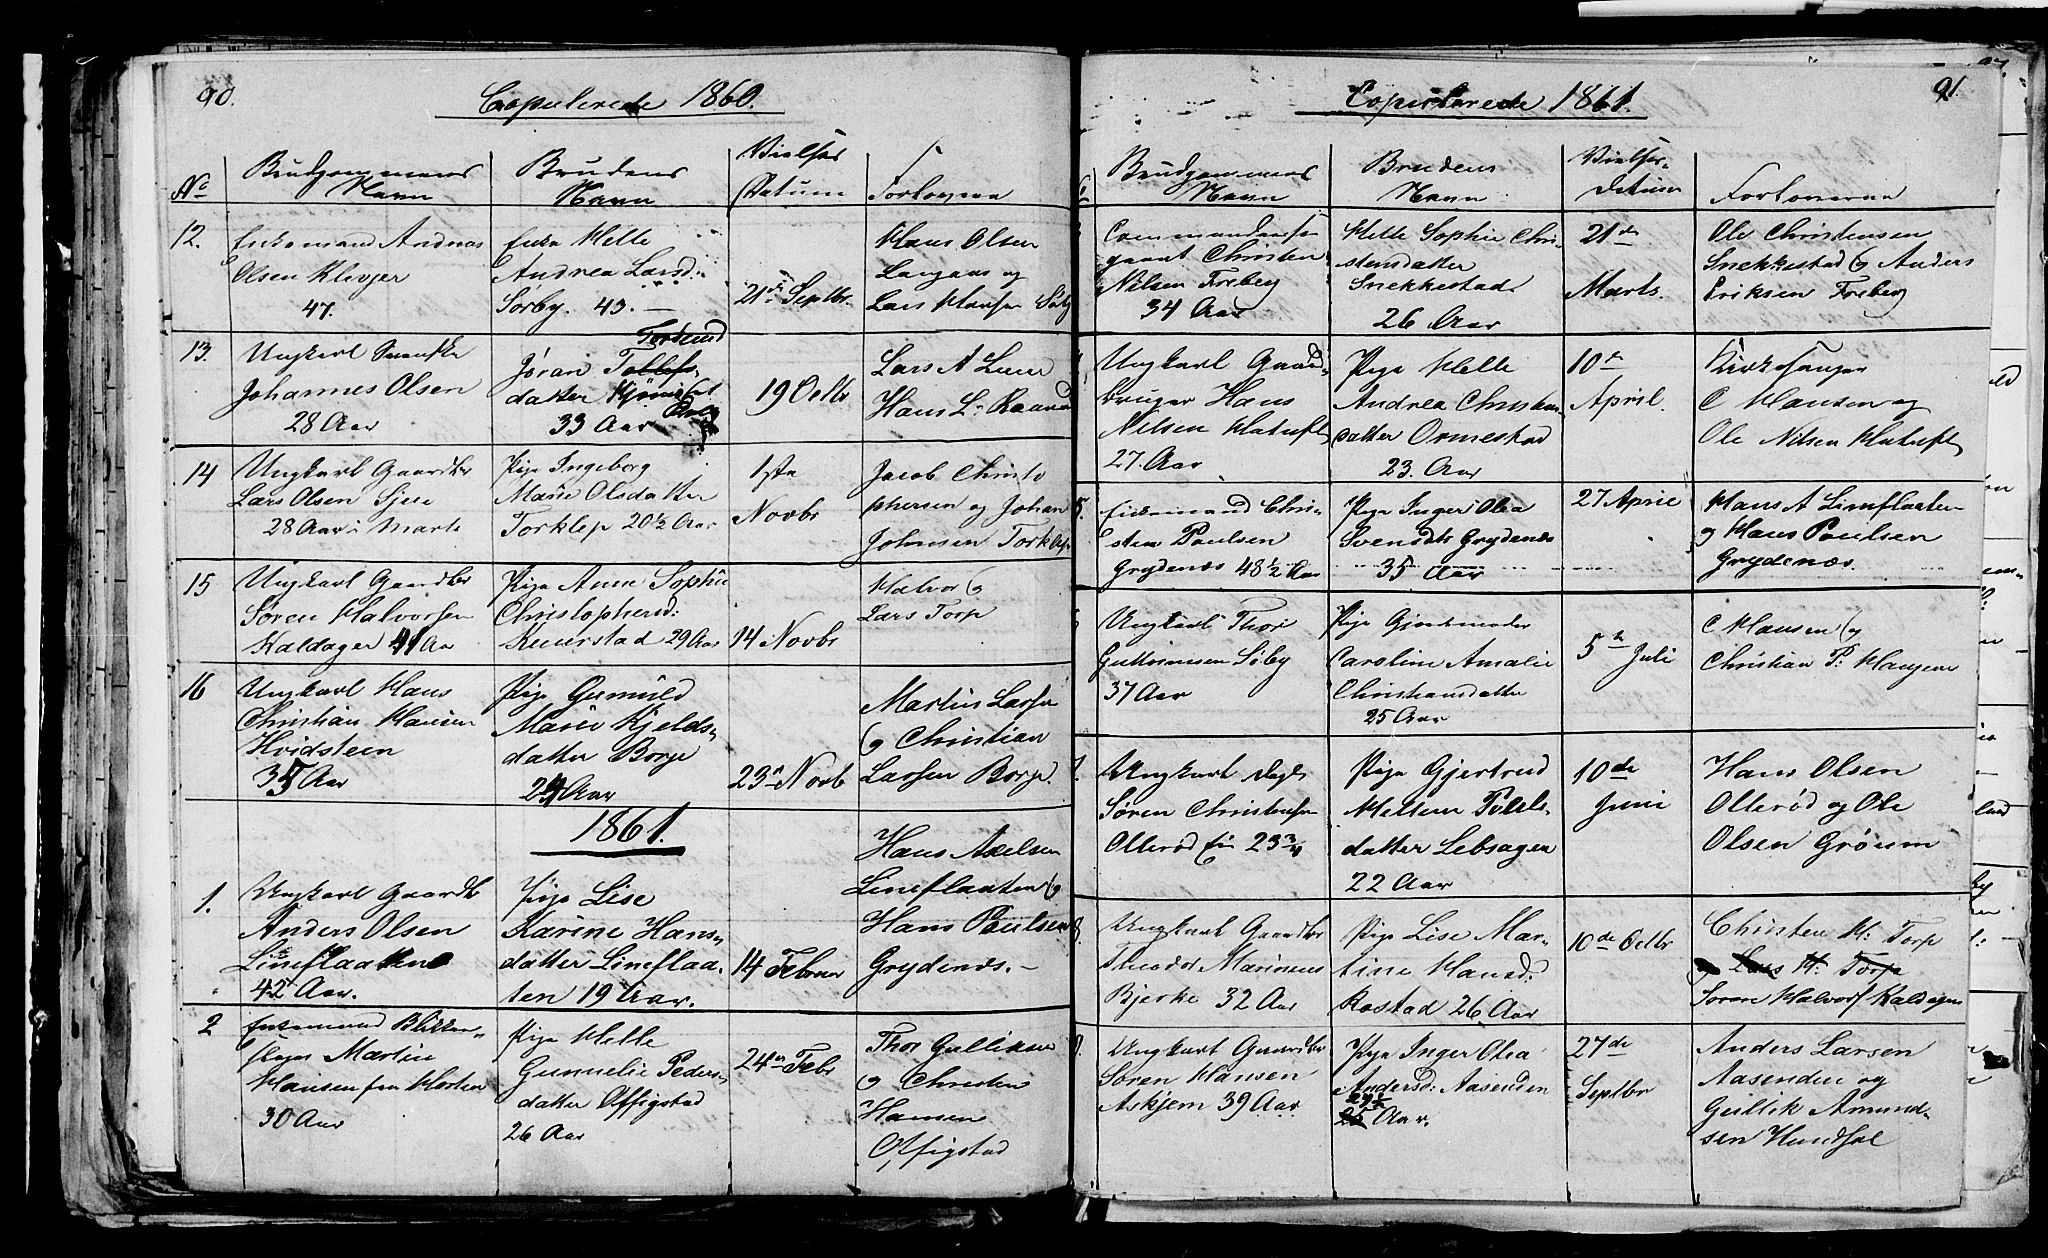 90.
Copulerede 1860.
No
Brudgommens Navn
Brudens Navn
Vielses Datum
Forlovere
12.
Enkemand Andreas
Olsen Klevjer
47.
Enke Helle
Andrea Larsd:
Sørby. 43. —
21de Septbr.
Hans Olsen
og
Lars Hansen
13.
Ungkarl Svenske
Johannes Olsen
28 Aar
Jøran
datter
33 Aar
19 Octbr
Lars A
Hans L.
14
Ungkarl Gaardbr
Lars Olsen
28 Aar i Marts
Pige Ingeborg
Marie Olsdatter
Torklep 20½ Aar
1ste
Novbr
Jacob Christo
phersen og Johan
Johnsen Torklep
15
Ungkarl Gaardbr
Søren Halvorsen
Kaldager 41 Aar
Pige Anne Sophie
Christophersd:
29 Aar
14 Novbr
Halvor og
Lars Torp
16
Ungkarl Hans
Christian Hansen
Hvidsteen
35 Aar
Pige Gunnild
Marie Kjelds-
datter Borge
Aar
23de Novb
Martin Larsen
og Christian
Larsen Borge.
1861.
1.
Ungkarl Gaardbr
Anders Olsen
Lineflaaten
42 Aar.
Pige Lise
Karine Hans-
datter Lineflaa-
ten 19 Aar.
14 Februar
Hans Axelsen
Lineflaaten og
Hans Paulsen
Grydenæs. —
2
Enkemand Blikken-
slager Martin
Hansen fra Horten
30 Aar
Pige Helle
Gunnelie Peders-
datter Offigstad
26 Aar
24de Febr
Thor Gulliksen
og Christen
Hansen
Offigstad
91
Copulerede 1861.
Brudgommens Navn
Brudens Navn
Vielses-
datum
Forloverne
Christen
Nilsen Freberg
34 Aar
Helle Sophie Chri-
stensdatter
Snekkestad
26 Aar
21de
Marts.
Ole Christensen
Snekkestad og Anders
Eriksen Freberg
Ungkarl Gaard-
bruger Hans
Nilsen
27. Aar
Pige Helle
Andrea Christens-
datter Ormestad
23. Aar
10de
April.
Kirkesanger
C Hansen og
Ole Nilsen
5.
Enkemand Chri-
sten Paulsen
Grydenæs 48½ Aar
Pige Inger Olea
Svensdtr Grydenæs
35 Aar
27 April
Hans A Lineflaaten
og Hans Paulsen
Grydenæs.
Ungkarl Thor
Guttormsen Søby
37 Aar
Pige
Caroline Amalie
Christiansdatter
25 Aar
5te Juli
C Hansen og
Christian P: Haugene
7.
Ungkarl
Søren Christensen
Ollerød 23¾
Pige Gjertrud
Mathea Poels-
datter Lebsagen
22 Aar
10de
Juni
Hans Olsen
Ollerød og Ole
Olsen Grøum
8.
Ungkarl Gaardbr
Theodor Marinius
Bjerke 32 Aar
Pige Lise Mar-
tine Hansd:
Rostad 26 Aar
10de Octbr
Christen H: Torp
og Lars H: Torp
Søren Halvors Kaldager
Ungkarl Gaardbr
Søren Hansen
Askjem 39 Aar
Pige Inger Olea
Andersd: Aasenden
Aar.
27de
Septbr
Anders Larsen
Aasenden og
Gullik Amund-
sen Hundsal